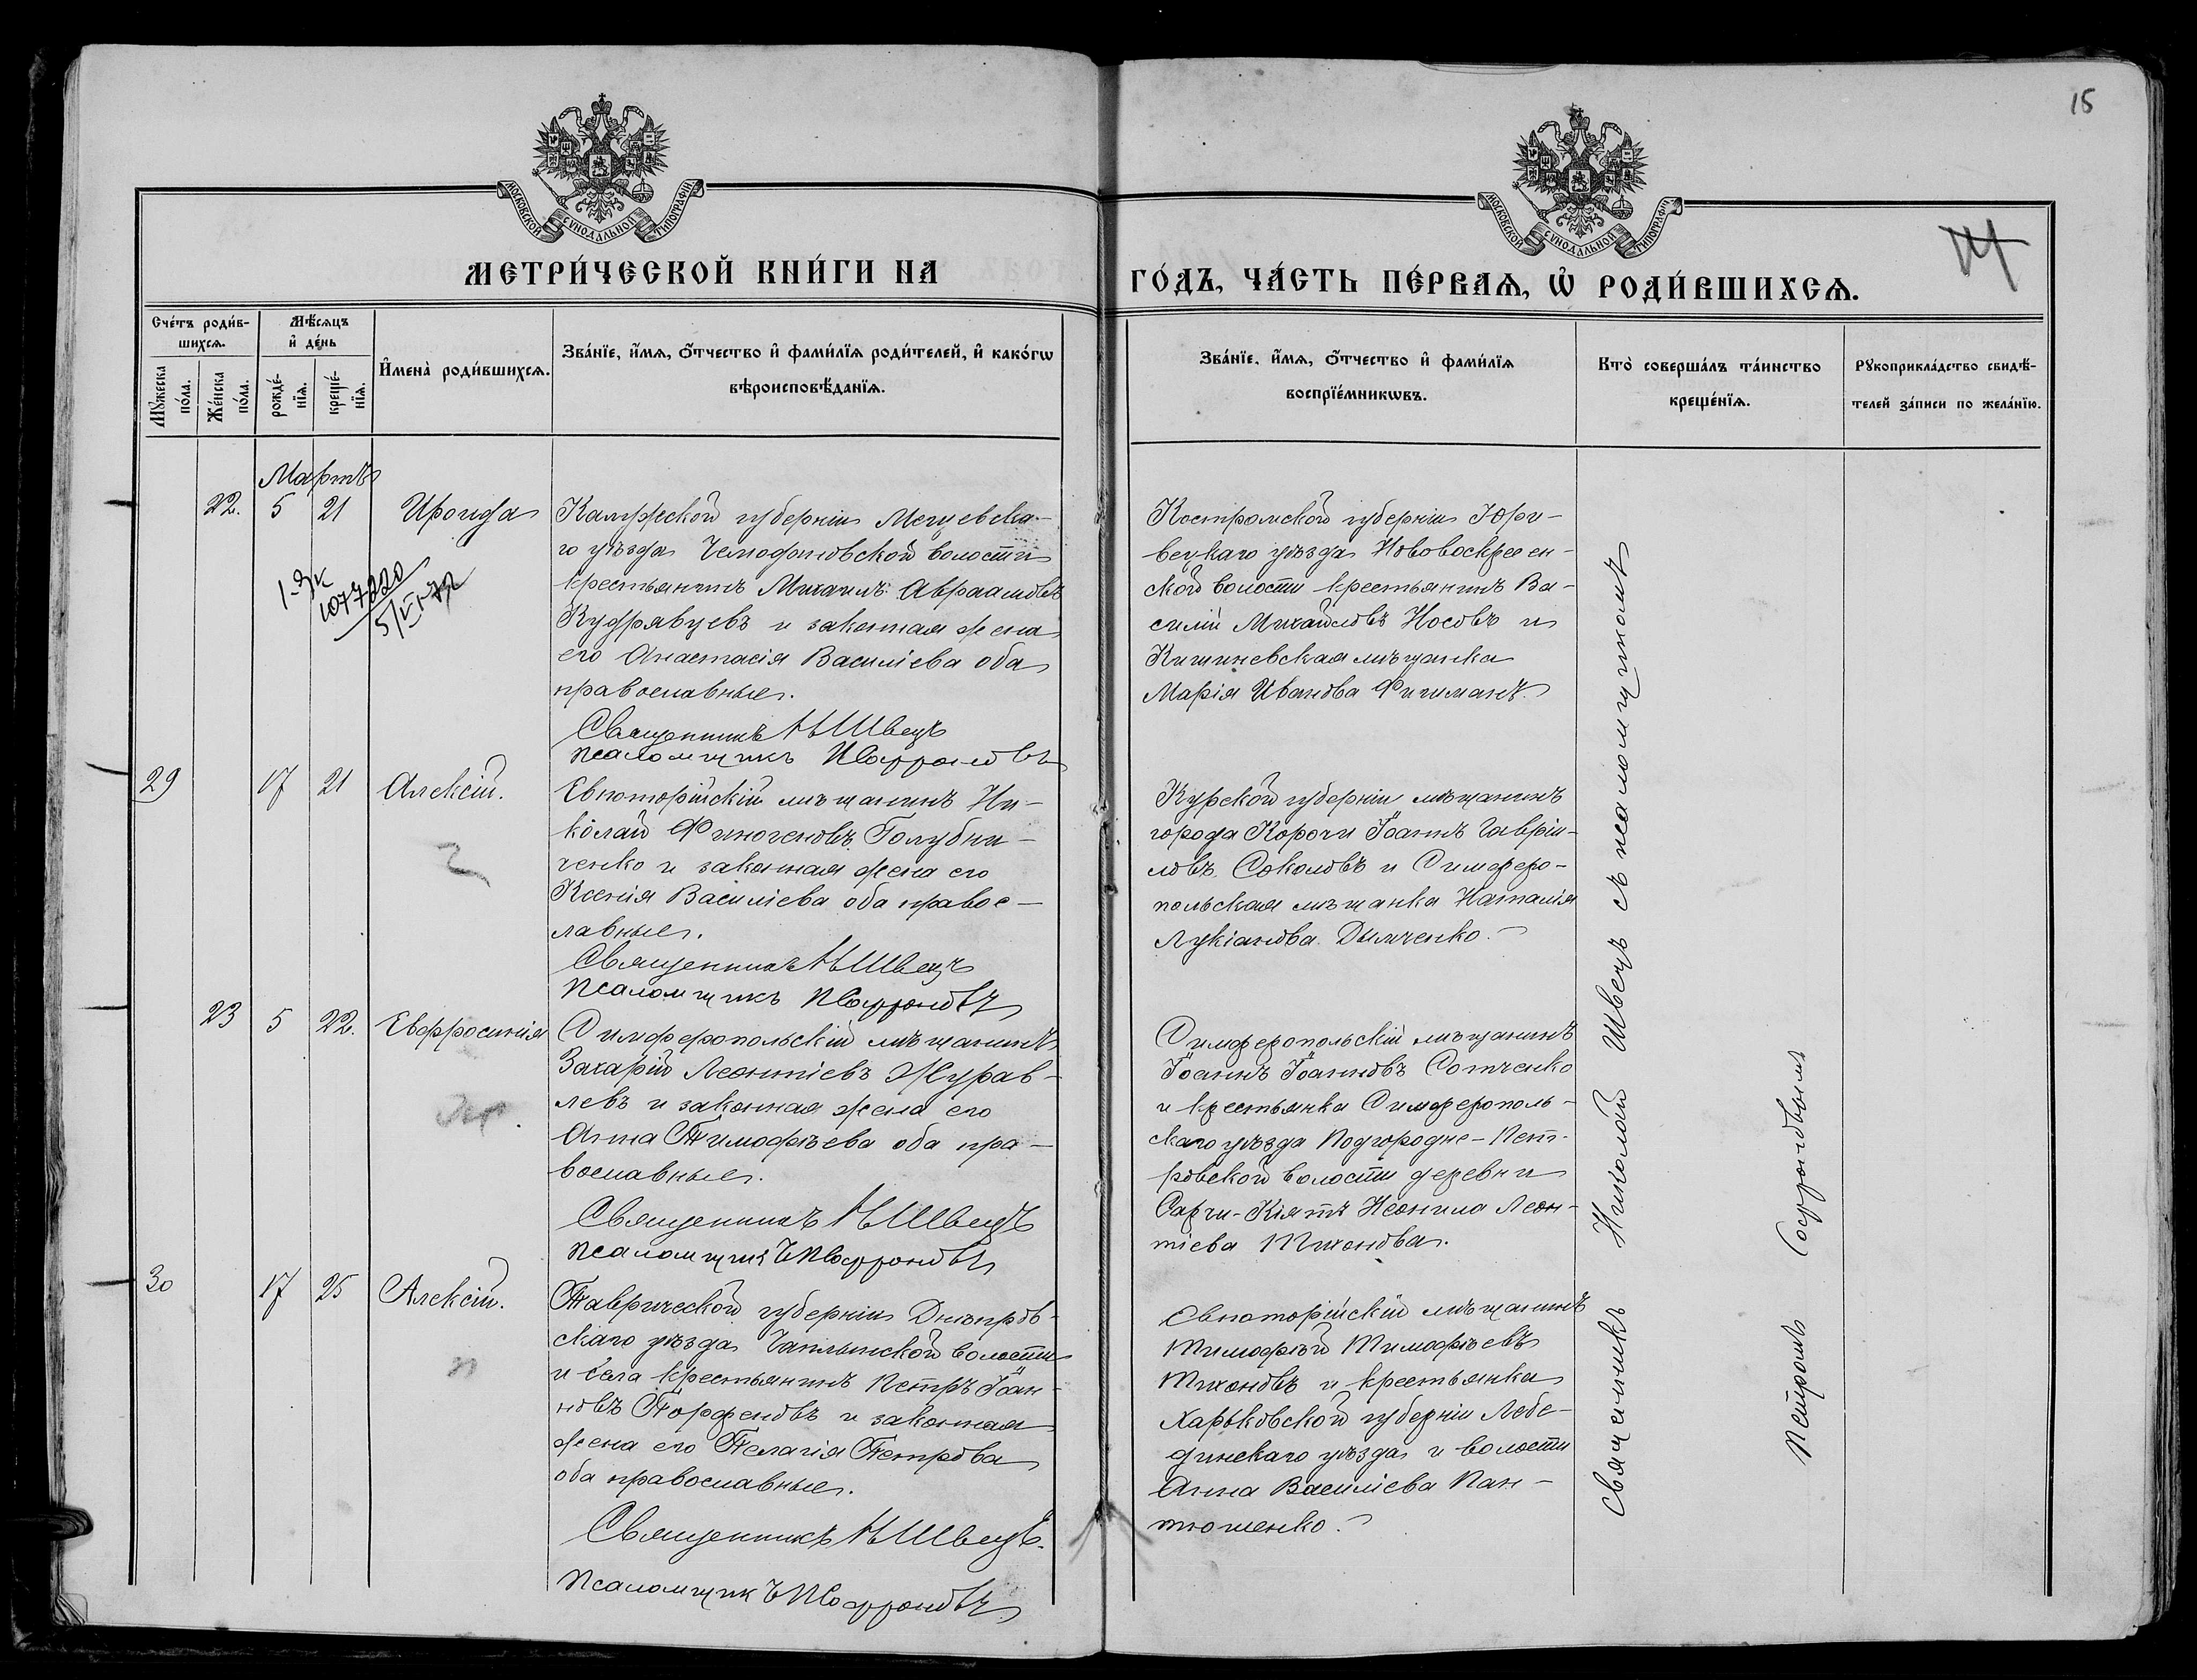 15
МОСКОВСКОЙ СѴНОДАЛЬНОЙ ТИПОГРАФІИ
МОСКОВСКОЙ СѴНОДАЛЬНОЙ ТИПОГРАФІИ
МЕТРИ́ЧЕСКОЙ КНИ́ГИ НА
ГО́ДЪ, ЧА́СТЬ ПЕ́РВАѦ, Ѡ҆ РОДИ́ВШИХСѦ.
Сче́тъ роди́в-
шихсѧ.
Мꙋ́жеска
по́ла.
Же́нска
по́ла.
Мѣ́сѧцъ
и҆ де́нь
рожде́-
нїѧ.
креще́-
нїѧ.
И҆мена̀ роди́вшихсѧ.
Зва́нїе, и҆́мѧ, ѻ҆́тчество и҆ фами́лїѧ роди́телей, и҆ како́гѡ
вѣроисповѣ́данїѧ.
Зва́нїе, и҆́мѧ, ѻ҆́тчество и҆ фами́лїѧ
воспрїе́мникѡвъ.
Кто̀ соверша́лъ та́инство
креще́нїѧ.
Рꙋкоприкла́дство свидѣ́-
телей за́писи по жела́нїю.
Мартъ
22. 5 21 Ироида
Калужской губерніи Мещевска-
го уѣзда Чемодановской волости
крестьянинъ Михаилъ Авраамовъ
Кудрявцевъ и законная жена
его Анастасія Василіева оба
православные.
Священникъ Н Швецъ
Псаломщикъ П Софроновъ
Костромской губерніи Юрь-
вецкаго уѣзда Нововоскресен-
ской волости крестьянинъ Ва-
силій Михайловъ Носовъ и
Кишиневская мѣщанка
Марія Иванова
1077220
29 17 21 Алексій.
Евпаторійскій мѣщанинъ Ни-
колай Финогеновъ Голубни-
ченко и законная жена его
Ксенія Василіева оба правос-
лавные.
Священникъ Н Швецъ
Псаломщикъ П Софроновъ
Курской губерніи мѣщанинъ
города Корочи Іоаннъ Гаврі-
ловъ Соколовъ и Симферо-
польская мѣщанка Наталія
Лукіанова Дымченко.
23 5 22. Евфросинія
Симферопольскій мѣщанинъ
Захарій Леонтіевъ Журав-
левъ и законная жена его
Анна Тимофѣева оба пра-
вославные.
Священникъ Н Швецъ
Псаломщикъ П Софроновъ
Симферопольскій мѣщанинъ
Іоаннъ Іоанновъ Сотченко
и крестьянка Симферополь-
скаго уѣзда Подгородне-Пет-
ровской волости деревни
Сарчи-Кіятъ Неонила Леон-
тіева Тихонова.
30 17 25 Алексій.
Таврической губерніи Днѣпров-
скаго уѣзда Чаплинской волости
и села крестьянинъ Петръ Іоан-
новъ Парфеновъ и законная
жена его Пелагія Петрова
оба православные.
Священникъ Н Швецъ.
Псаломщикъ П Софроновъ
Евпаторійскій мѣщанинъ
Тимофѣй Тимофѣевъ
Тихоновъ и крестьянка
Харьковской губерніи Лебе-
динскаго уѣзда и волости
Анна Василіева Пан-
тюшенко.
Священникъ Николай Швецъ съ псаломщикомъ
Петромъ Софроновымъ